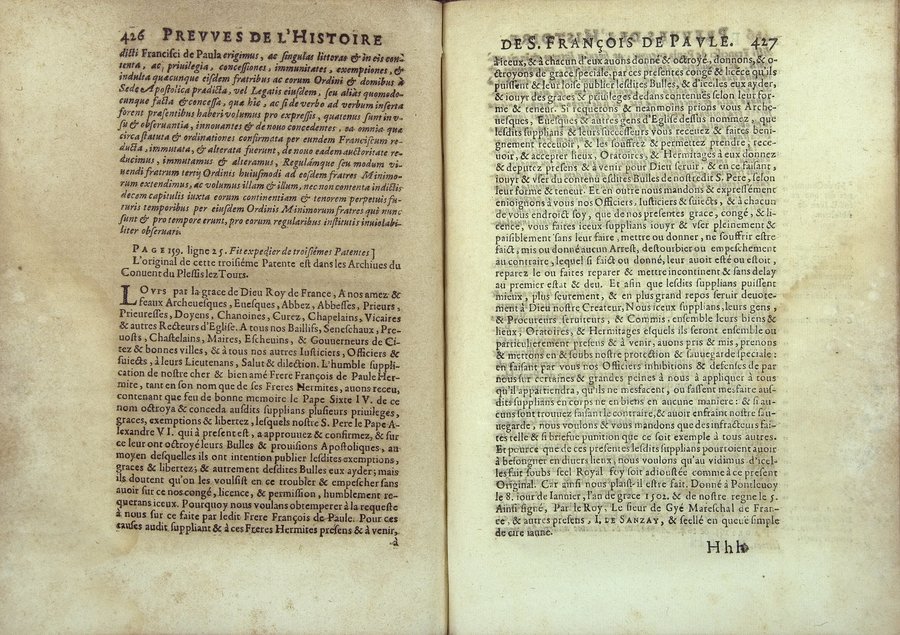 426 PREVVES DE L'HISTOIRE
dicti Francisci de Paula erigimus, ac singulas litteras & in eis con-
tenta, ac, priuilegia, concessiones, immunitates, exemptiones, &
indulta quæcunque eisdem fratribus ac eorum Ordini & domibus à
Sede Apostolica prædicta, vel Legatis eiusdem, seu aliàs quomodo-
cunque facta & concessa, qua hîc, ac si de verbo ad verbum inserta
forent præsentibus haberi volumus pro expressis, quatemus sunt in v-
su & obseruantia, innouantes & de nouo concedentes, ea omnia quæ
circa statuta & ordinationes confirmata per eundem Franciscum re-
ducta, immutata, & alterata fuerunt, de nouo eadem auctoritate re-
ducimus, immutamus & alteramus, Regulámque seu modum vi-
uendi fratrum tertij Ordinis huiusmodi ad eosdem fratres Minimo-
rum extendimus, ac volumus illam & illum, nec non contenta in dictis
decem capitulis iuxta eorum continentiam & tenorem perpetuis fu-
ruris temporibus per eiusdem Ordinis Minimorum fratres qui nunc
sunt & pro tempore erunt, pro eorum regularibus institutis inuiolabi-
liter obseruari.
PAGE 159. ligne 25. Fit expedier de troisiémes Patentes]
L'original de cette troisiéme Patente est dans les Archiues du
Conuent du Plessis lez Tours.
LOVYS par la grace de Dieu Roy de France, A nos amez &
feaux Archeuesques, Euesques, Abbez, Abbesses, Prieurs,
Prieuresses, Doyens, Chanoines, Curez, Chapelains, Vicaires
& autres Recteurs d'Eglise. A tous nos Baillifs, Seneschaux, Pre-
uosts, Chastelains, Maires, Escheuins, & Gouuerneurs de Ci-
tez & bonnes villes, & à tous nos autres Iusticiers, Officiers &
suiects, à leurs Lieutenans, Salut & dilection. L'humble suppli-
cation de nostre cher & bien amé Frere François de Paule Her-
mite, tant en son nom que de ses Freres Hermites, auons receu,
contenant que feu de bonne memoire le Pape Sixte IV. de ce
nom octroya & conceda ausdits supplians plusieurs priuileges,
graces, exemptions & libertez, lesquels nostre S. Pere le Pape A-
lexandre VI. qui à present est, a approuuez & confirmez, & sur
ce leur ont octroyé leurs Bulles & prouisions Apostoliques, au
moyen desquelles ils ont intention publier lesdites exemptions,
graces & libertez; & autrement desdites Bulles eux ayder; mais
ils doutent qu'on les voulsist en ce troubler & empescher sans
auoir sur ce nos congé, licence, & permission, humblement re-
querans iceux. Pourquoy nous voulans obtemperer à la requeste
à nous sur ce faite par ledit Frere François de Paule. Pour ces
causes audit suppliant & à ces Freres Hermites presens & à venir,
à
DE S. FRANÇOIS DE PAVLE. 427
à iceux, & à chacun d'eux auons donné & octroyé, donnons, & o-
ctroyons de grace speciale, par ces presentes congé & licēce qu'ils
puissent & leur loise publier lesdites Bulles, & d'icelles eux ayder,
& iouyr des graces & priuileges dedans contenuës selon leur for-
me & teneur. Si requerons & neanmoins prions vous Arche-
uesques, Euesques & autres gens d'Eglise dessus nommez, que
lesdits supplians & leurs successeurs vous receuez & faites beni-
gnement receuoir, & les souffrez & permettez prendre, rece-
uoir, & accepter lieux, Oratoires, & Hermitages à eux donnez
& deputez presens & à venir pour Dieu seruir, & en ce faisant,
iouyr & vser du contenu ésdites Bulles de nostredit S. Pere, selon
leur forme & teneur. Et en outre mandons & expressément
enioignons à vous nos Officiers, Iusticiers & suiects, & à chacun
de vous endroict soy, que de nos presentes grace, congé, & li-
cence, vous faites iceux supplians iouyr & vser pleinement &
paisiblement sans leur faite, mettre ou donner, ne souffrir estre
faict, mis ou donné aucun Arrest, destourbier ou empeschement
au contraire, lequel si faict ou donné, leur auoit esté ou estoit,
reparez le ou faites reparer & mettre incontinent & sans delay
au premier estat & deu. Et afin que lesdits supplians puissent
mieux, plus seurement, & en plus grand repos seruir deuote-
ment à Dieu nostre Createur, Nous iceux supplians, leurs gens,
& Procureurs seruiteurs, & Commis, ensemble leurs biens &
lieux, Oratoires, & Hermitages esquels ils seront ensemble ou
particulierement presens & à venir, auons pris & mis, prenons
& mettons en & soubs nostre protection & sauuegarde speciale:
en faisant par vous nos Officiers inhibitions & defenses de par
nous sur certaines & grandes peines à nous à appliquer à tous
qu'il appartiendra, qu'ils ne mesfacent, ou fassent mesfaire aus-
dits supplians en corps ne en biens en aucune maniere: & si au-
cuns sont trouuez faisant le contraire, & auoir enfraint nostre sau-
uegarde, nous voulons & vous mandons que des infracteurs fai-
tes telle & si briefue punition que ce soit exemple à tous autres.
Et pource que de ces presentes lesdits supplians pourroient auoir
à besongner en diuers lieux, nous voulons qu'au vidimus d'icel-
les fait soubs seel Royal foy soit adioustée comme à ce present
Original. Car ainsi nous plaist-il estre fait. Donné à Pontleuoy
le 8. iour de Ianuier, l'an de grace 1502. & de nostre regne le 5.
Ainsi signé, Par le Roy. Le sieur de Gyé Mareschal de Fran-
ce, & autres presens, I. DE SANZAY, & seellé en queuë simple
de cire iaune.
Hhh